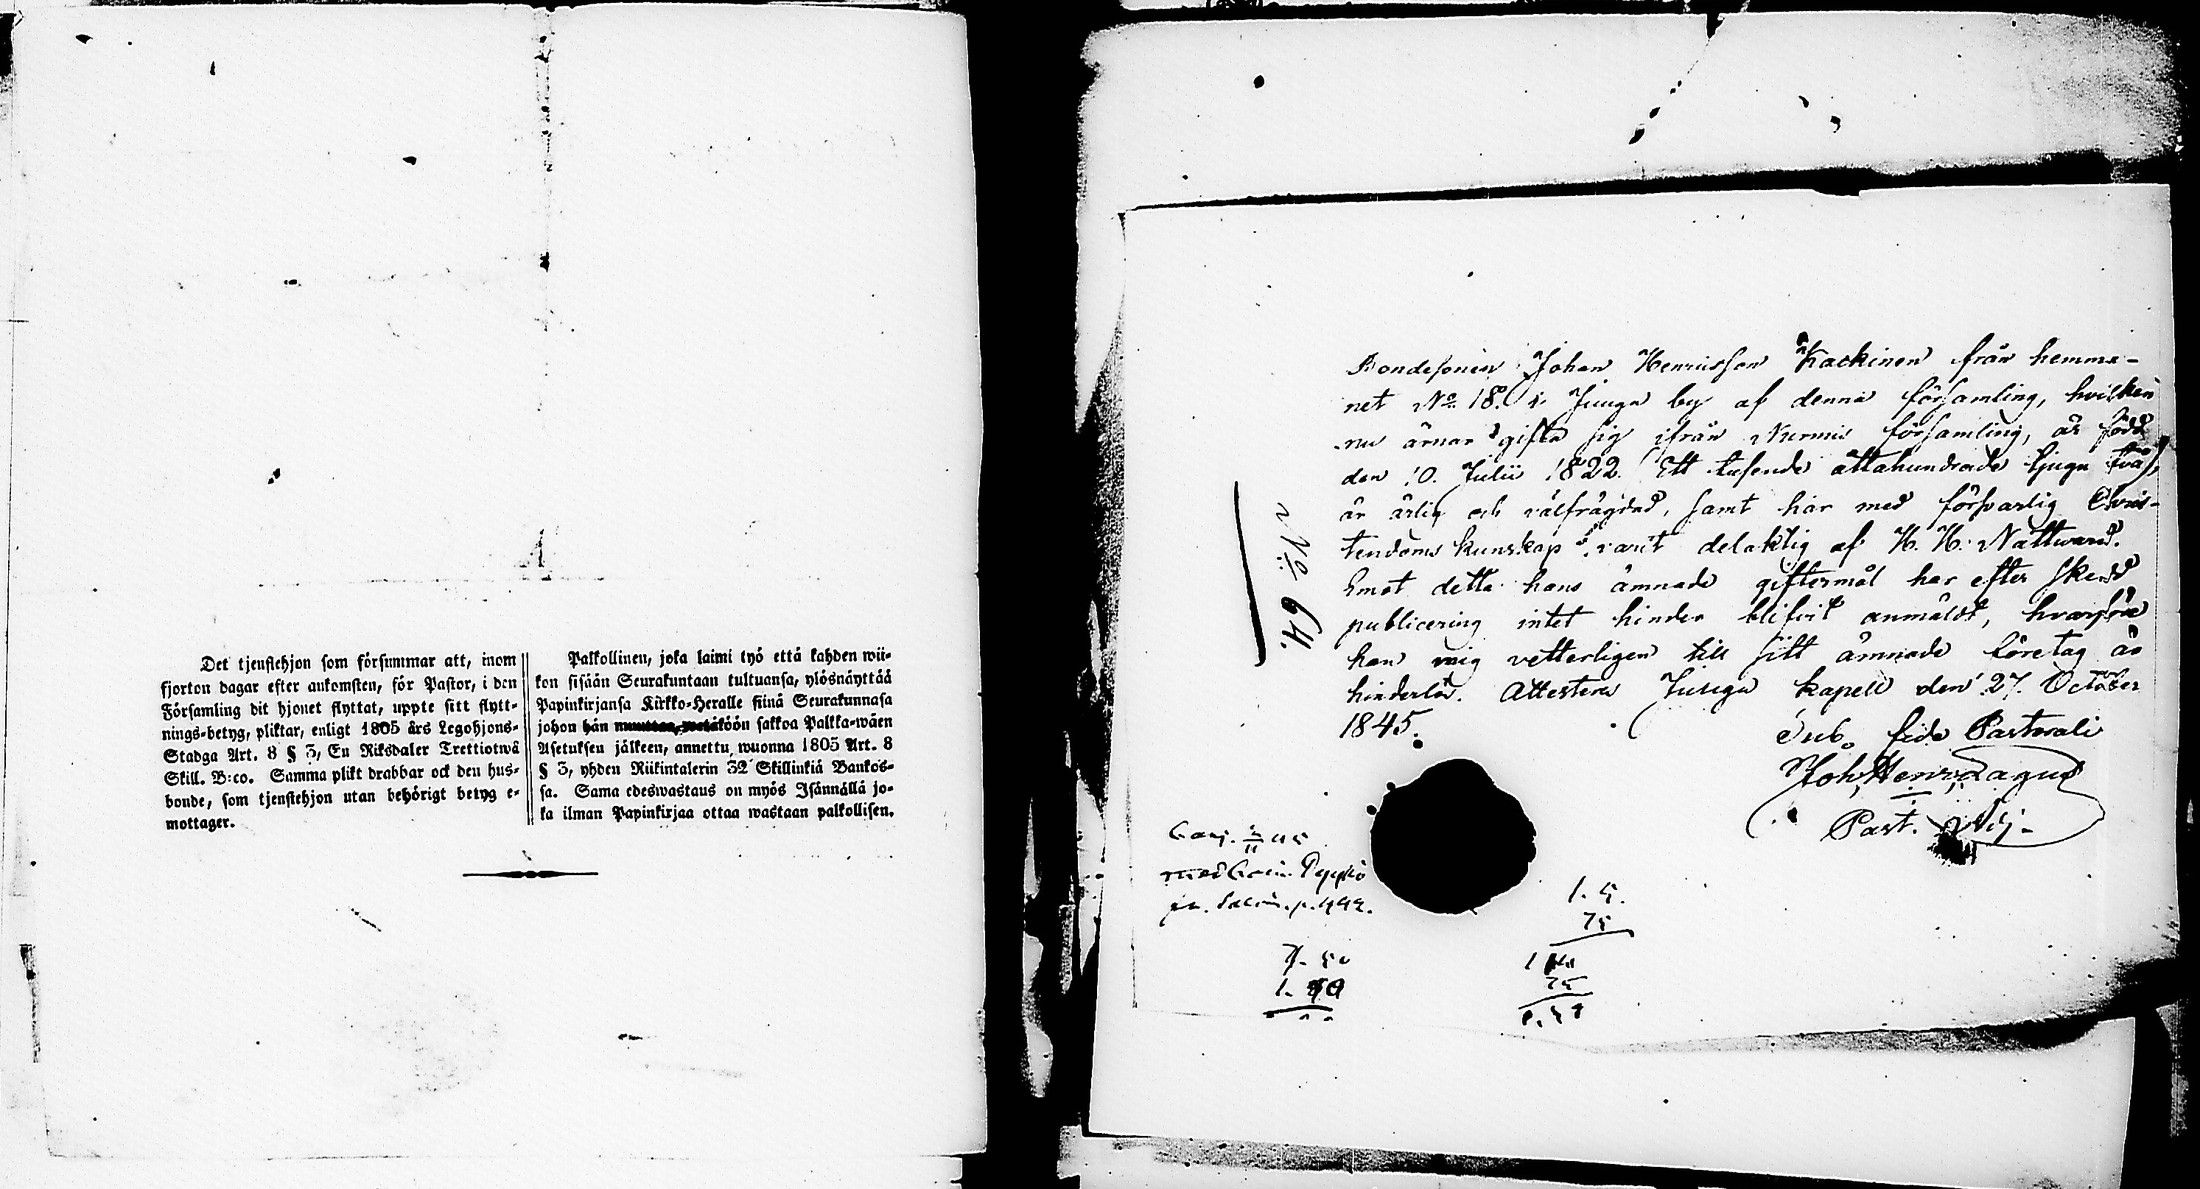 Det tjenstehjon som försummar att, inom
fjorton dagar efter ankomsten, för Pastor, i den
Församling dit hjonet flyttat, uppte sitt flytt-
nings-betyg, pliktar, enligt 1805 års Legohjons-
Stadga Art. 8 § 3, En Riksdaler Trettiotwå
Skill. B:co. Samma plikt drabbar ock den hus-
bonde, som tjenstehjon utan behörigt betyg e-
mottager.
Palkollinen, joka laimi lyö että kahden wii-
kon sisään Seurakuntaan tultuansa, ylösnäyttää
Papinkirjansa Kirkko-Heralle siinä Seurakunnasa
johon hän sakkoa Palkka-wäen
Asetuksen jälkeen, annettu wuonna 1805 Art. 8
§ 3, yhden Riikintalerin 32 Skillinkiä Bankos-
sa. Sama edeswastaus on myös Isännällä jo-
ka ilman Papinkirjaa ottaa wastaan palkollisen.
No 64.
Bondesonen Johan Henricsson Kackinen från hemma-
net No 18. i Juuga by af denna församling, hvilken
nu ärnar gifta sig ifrån Nurmis församling, är född
den 10. Julii 1822. Ett tusende åttahundrade tjugu två,
är ärlig och välfrägdad, samt har med försvarlig Chris-
tendoms kunskap varit delaktig af H. H. Nattward.
Emot detta hans ämnade giftermål har efter skedd
publicering intet hinder blifvit anmäldt, hvarföre
han mig vetterligen till sitt ämnade företag är
hinderlös. Attesterar Juuga kapell den 27. October
1845.
Sub fide Pastorali
Joh. Henr. Lagus
Past. Adj.
45
med
p. 499.
1. 5.
75
7. 50
1.
75